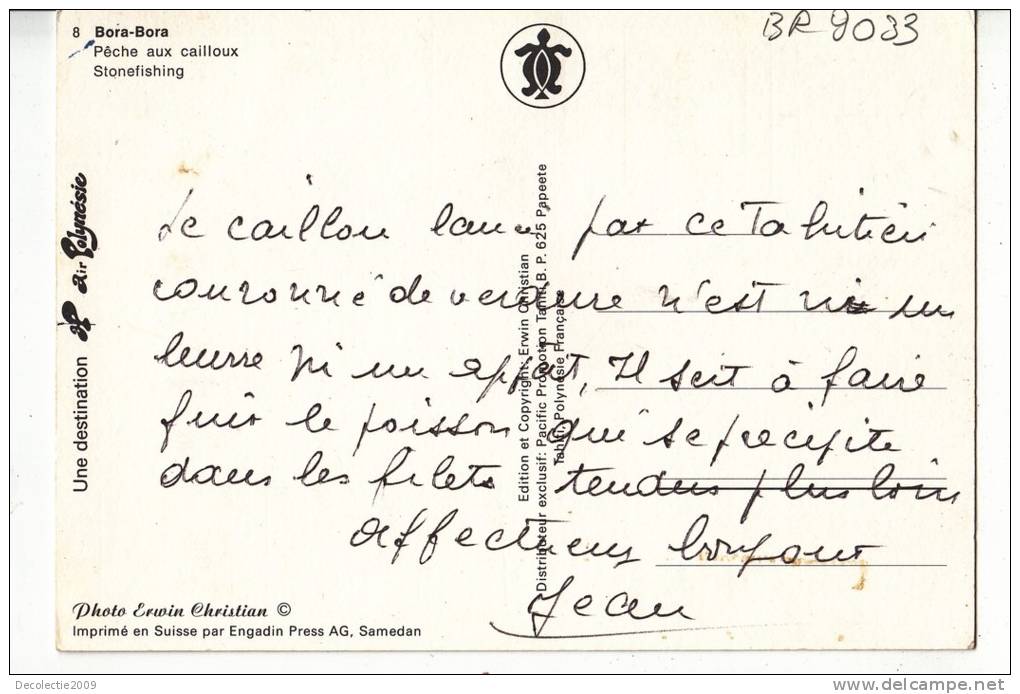 8 Bora-Bora
Pêche aux cailloux
Stonefishing
BR 9033
Une destination Air Polynésie
Le caillou lancé par ce Tahitien
couronné de verdure n'est ni un
leurre ni un appât, Il sert à faire
fuir le poisson qui se précipite
dans les filets tendus plus loin
affectueux bonjour
Jean
Edition et Copyright: Erwin Christian
Distributeur exclusif: Pacific Promotion Tahiti B. P. 625 Papeete
Tahiti, Polynésie Française
Photo Erwin Christian ©
Imprimé en Suisse par Engadin Press AG, Samedan
Decolectie2009
delcampe.net